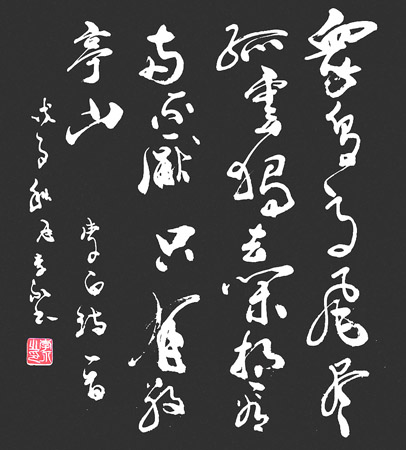 眾鳥高飛盡
孤雲獨去閑相看
兩不厭只有敬
亭山
李白詩一首
秋月李